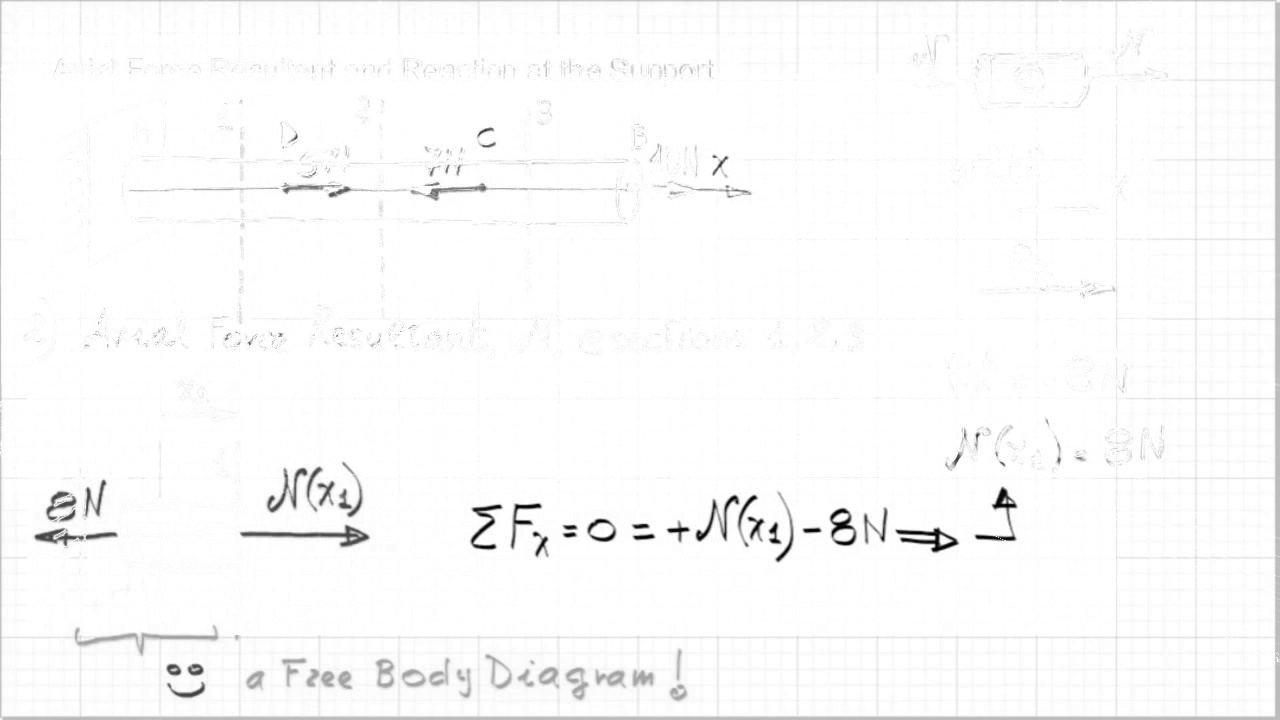 Axial Force Resultant and Reaction at the Support
1 2 3
A D C B
5N 7N 10N x
N N
2) Axial Force Resultant, N, @sections 1,2,3
x1
8N
N(x1) = 8N
8N N(x1) ΣFx = 0 = +N(x1) - 8N ⇒
a Free Body Diagram!